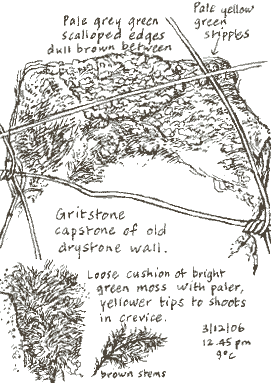 Pale grey green
scalloped edges
dull brown between
Pale yellow
green
stipples
Gritstone
capstone of old
drystone wall.
Loose cushion of bright
green moss with paler,
yellower tips to shoots
in crevice.
3/12/06
12.45 pm
9°C
brown stems